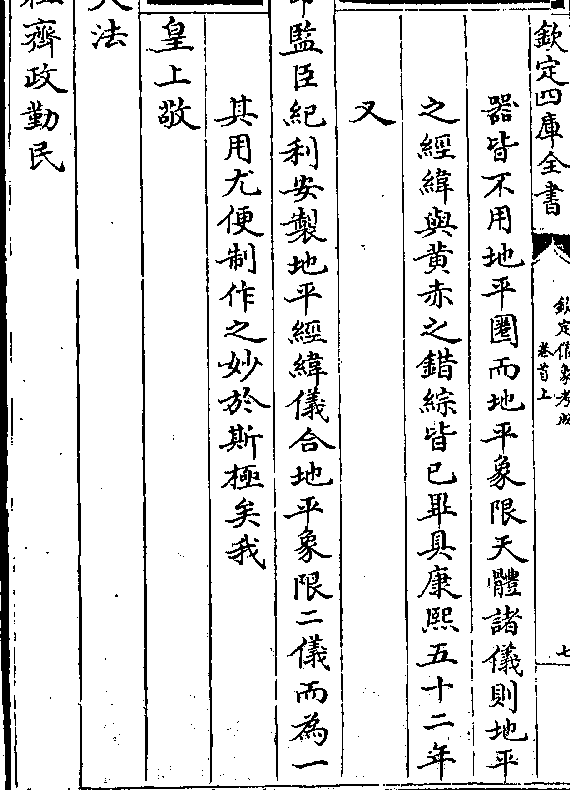 欽定四庫全書
欽定儀象考成
卷首上
七
器皆不用地平圏而地平象限天體諸儀則地平
之經緯與黄赤之錯綜皆已畢具康熙五十二年
又
監臣紀利安製地平經緯儀合地平象限二儀而為一
其用尤便制作之妙於斯極矣我
皇上敬
法
齊政勤民